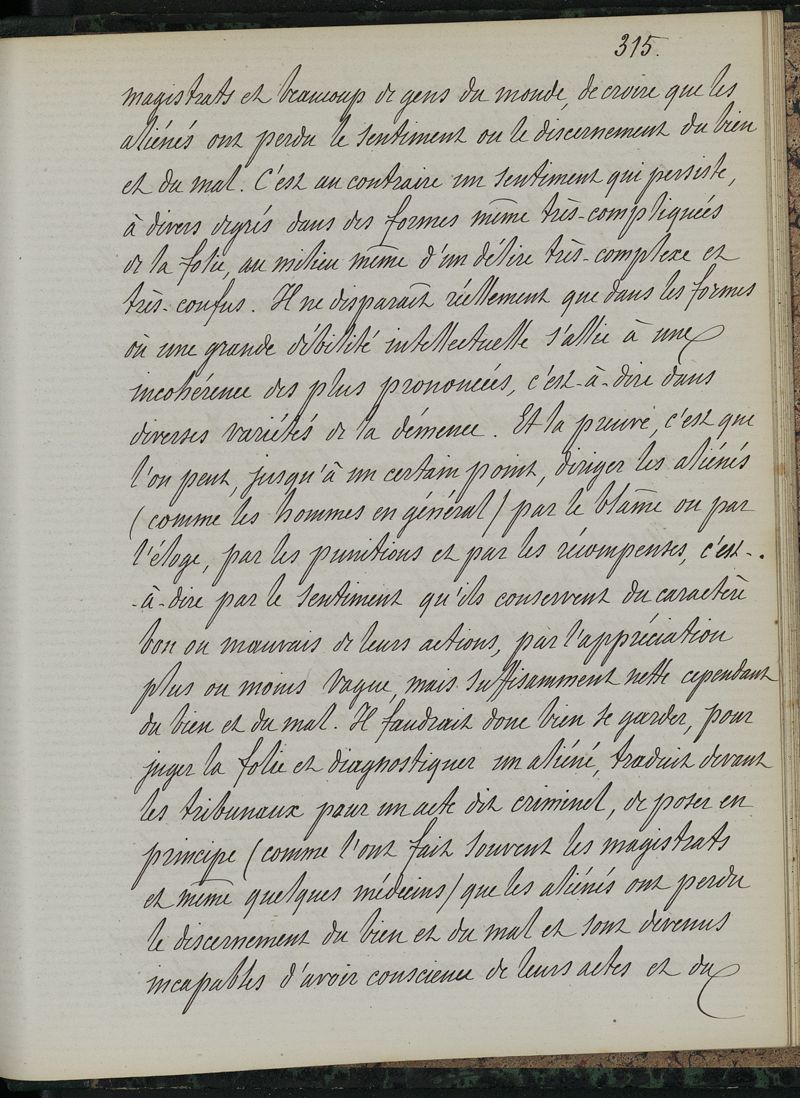 315.
magistrats et beaucoup de gens du monde, de croire que les
aliénés ont perdu le sentiment ou le discernement du bien
et du mal. C'est au contraire un sentiment qui persiste,
à divers degrés dans des formes même très-compliquées
de la folie, au milieu même d'un délire très-complexe et
très-confus. Il ne disparaît réellement que dans les formes
où une grande débilité intellectuelle s'allie à une
incohérence des plus prononcées, c'est-à-dire dans
diverses variétés de la démence. Et la preuve, c'est que
l'on peut, jusqu'à un certain point, diriger les aliénés
(comme les hommes en général) par le blâme ou par
l'éloge, par les punitions et par les récompenses, c'est-
-à-dire par le sentiment qu'ils conservent du caractère
bon ou mauvais de leurs actions, par l'appréciation
plus ou moins vague, mais suffisamment nette cependant
du bien et du mal. Il faudrait donc bien se garder, pour
juger la folie et diagnostiquer un aliéné, traduit devant
les tribunaux pour un acte dit criminel, de poser en
principe (comme l'ont fait souvent les magistrats
et même quelques médecins) que les aliénés ont perdu
le discernement du bien et du mal et sont devenus
incapables d'avoir conscience de leurs actes et du